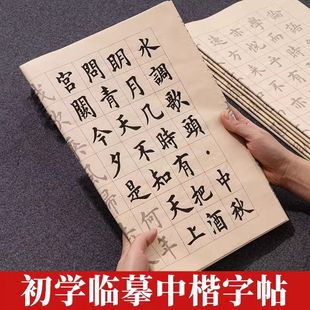 水調歌頭·中秋
明月几時有把酒
問青天不知天上
宮闕今夕是何年
初学临摹中楷字帖